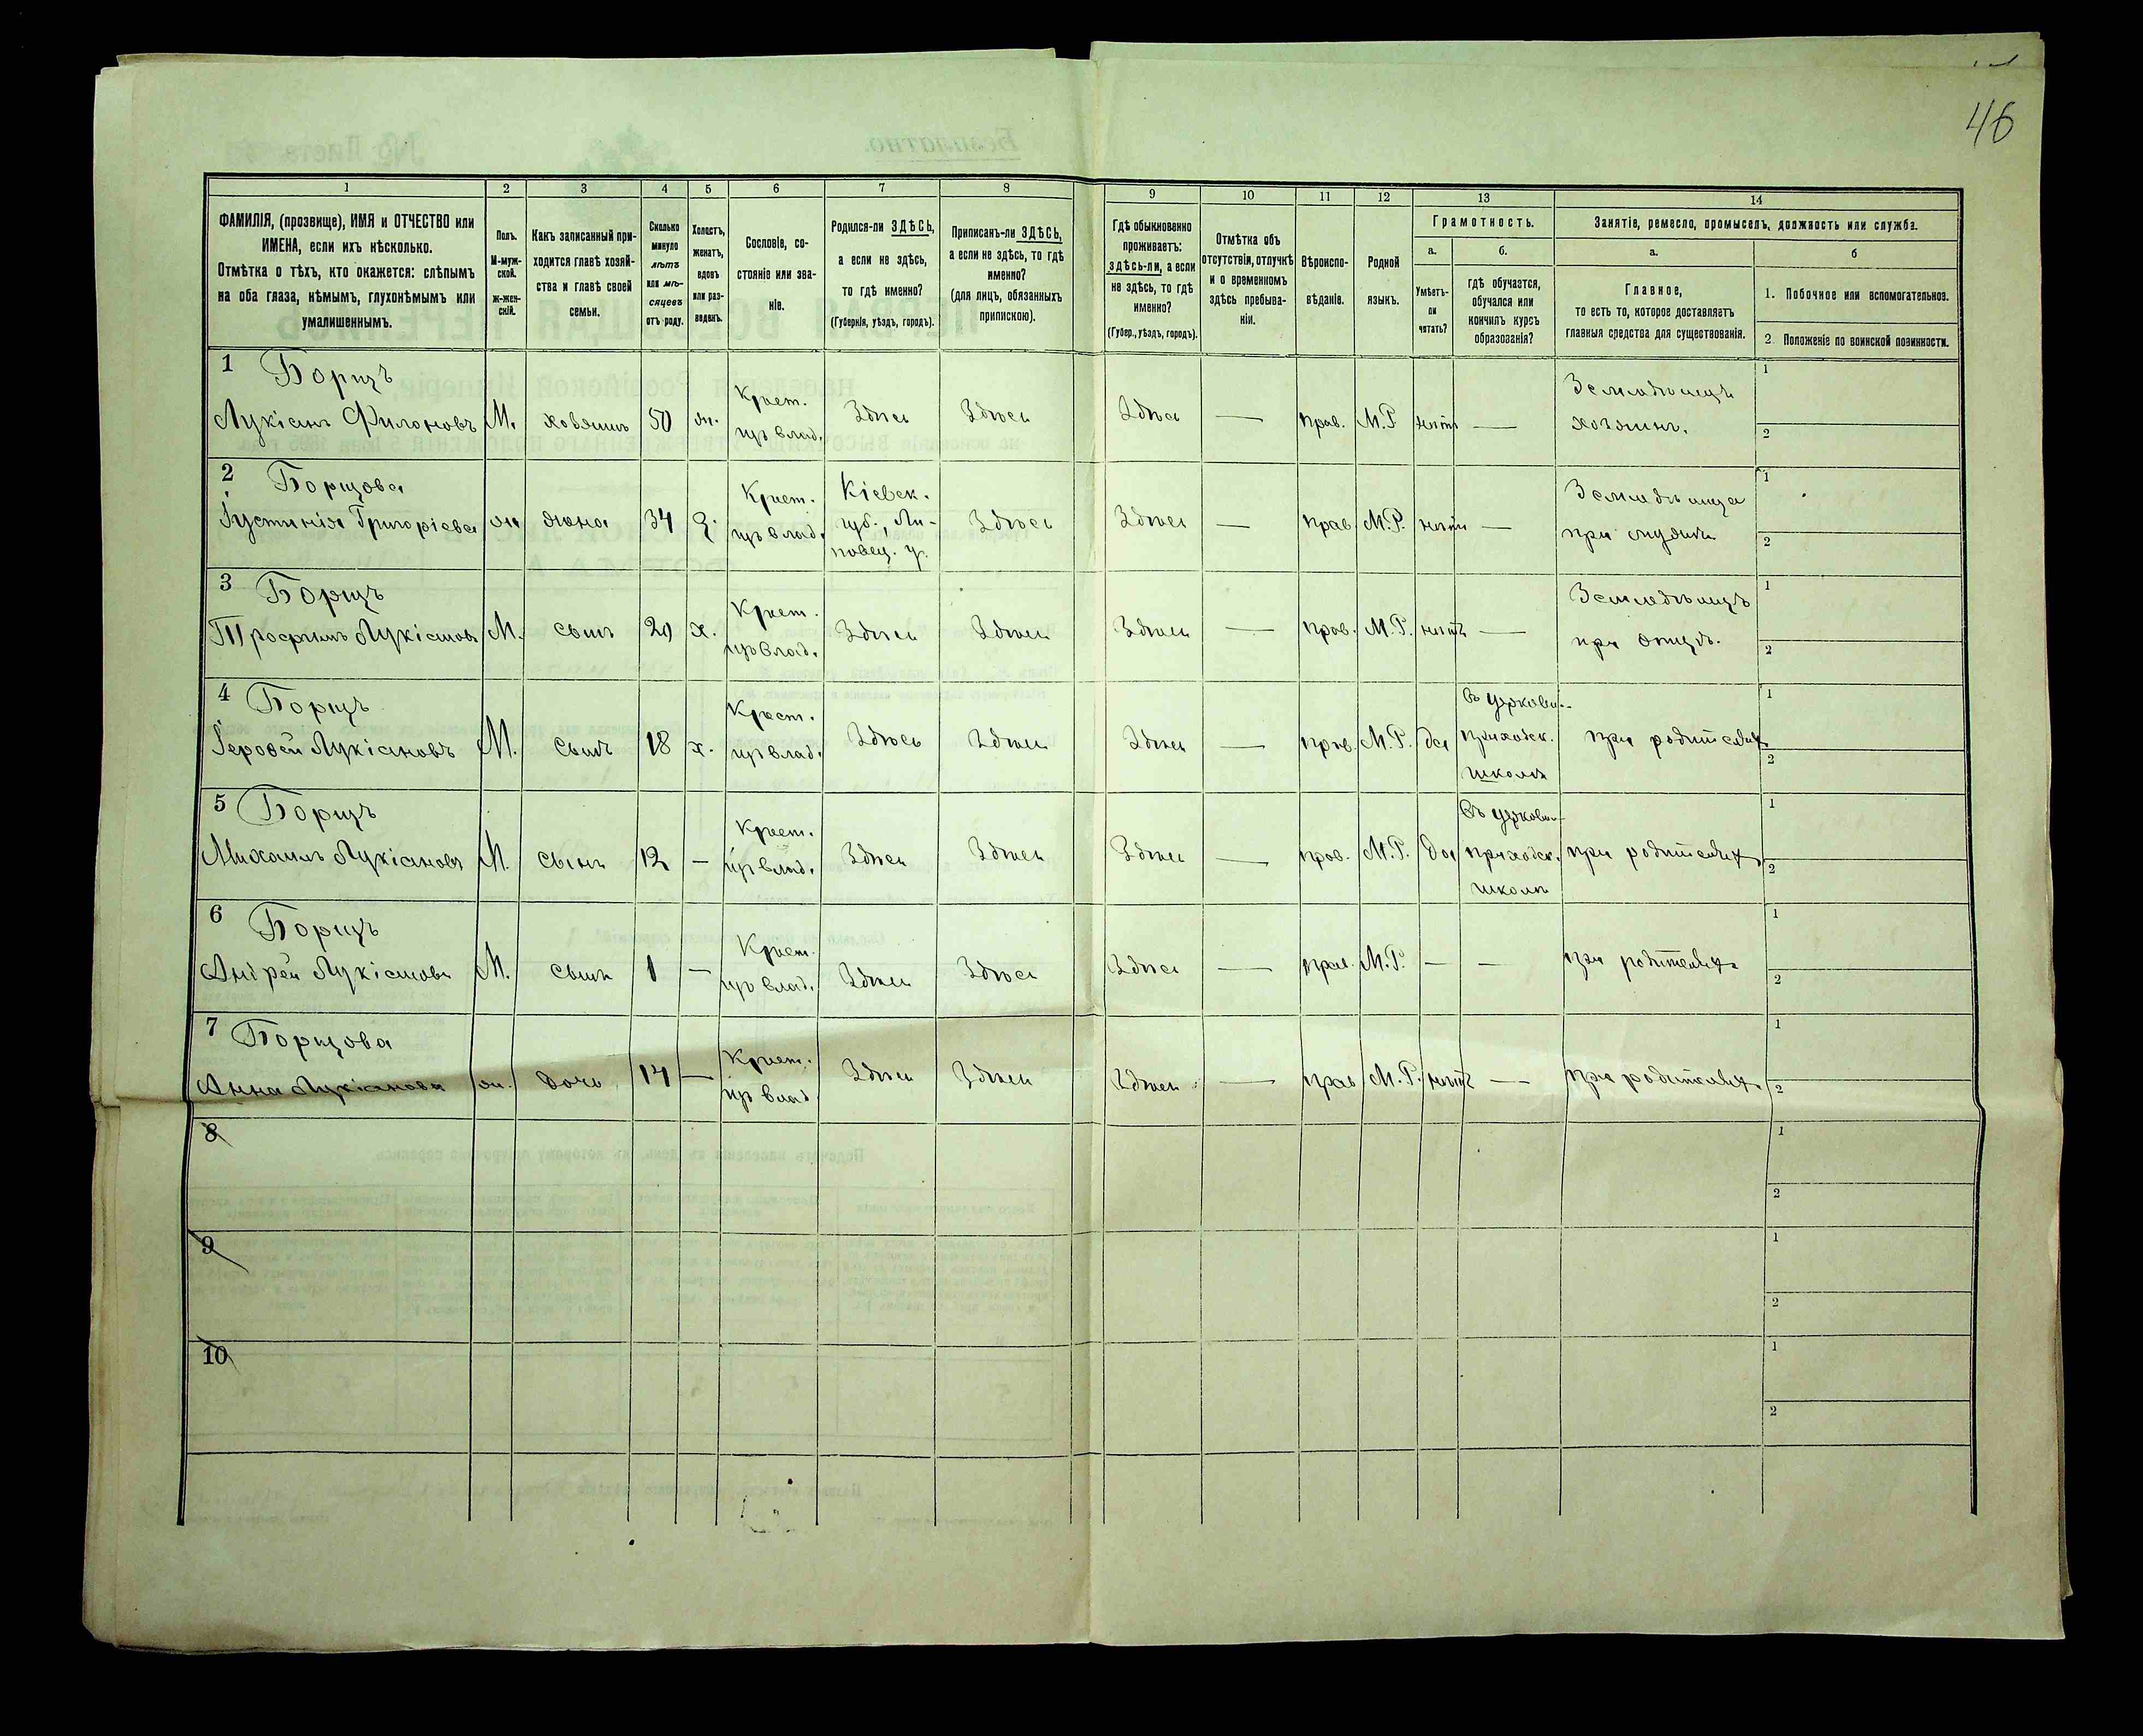 46
1 2 3 4 5 6 7 8 9 10 11 12 13 14
ФАМИЛІЯ, (прозвище), ИМЯ и ОТЧЕСТВО или ИМЕНА, если ихъ нѣсколько.
Отмѣтка о тѣхъ, кто окажется: слѣпымъ на оба глаза, нѣмымъ, глухонѣмымъ или умалишеннымъ.
Полъ. М-мужской. Ж-женскій.
Какъ записанный приходится главѣ хозяйства и главѣ своей семьи.
Сколько минуло лѣтъ или мѣсяцевъ отъ роду.
Холостъ, женатъ, вдовъ или разведенъ.
Сословіе, состояніе или званіе.
Родился-ли ЗДѢСЬ, а если не здѣсь, то гдѣ именно? (Губернія, уѣздъ, городъ).
Приписанъ-ли ЗДѢСЬ, а если не здѣсь, то гдѣ именно? (для лицъ, обязанныхъ припискою).
Гдѣ обыкновенно проживаетъ: здѣсь-ли, а если не здѣсь, то гдѣ именно? (Губер., уѣздъ, городъ).
Отмѣтка объ отсутствіи, отлучкѣ и о временномъ здѣсь пребываніи.
Вѣроисповѣданіе.
Родной языкъ.
Грамотность.
а. Умѣетъ-ли читать?
б. гдѣ обучается, обучался или кончилъ курсъ образованія?
Занятіе, ремесло, промыселъ, должность или служба.
а. Главное, то есть то, которое доставляетъ главныя средства для существованія.
б
1. Побочное или вспомогательное.
2. Положеніе по воинской повинности.
1 Борщъ
Лукіанъ Филоновъ М. хозяинъ 50 ж. Крест. изъ влад. Здѣсь Здѣсь Здѣсь — прав. М.Р. нѣтъ — Земледѣлецъ хозяинъ. 1 2
2 Борщова
Іустинія Григоріева ж жена 34 З. Крест. изъ влад. Кіевск. губ., Липовец. у. Здѣсь Здѣсь — прав. М.Р. нѣтъ — Земледѣлица при мужѣ 1 2
3 Борщъ
Трофимъ Лукіановъ М. сынъ 20 х. Крест. изъ влад. Здѣсь Здѣсь Здѣсь — прав. М.Р. нѣтъ — Земледѣлецъ при отцѣ. 1 2
4 Борщъ
Іеровей Лукіановъ М. сынъ 18 х. Крест. изъ влад. Здѣсь Здѣсь Здѣсь — прав. М.Р. да Въ церковн. приходск. школѣ при родителях 1 2
5 Борщъ
Михаилъ Лукіановъ М. сынъ 12 — Крест. изъ влад. Здѣсь Здѣсь Здѣсь — прав. М.Р. да Въ церковн. приходск. школѣ при родителях 1 2
6 Борщъ
Андрей Лукіановъ М. сынъ 1 — Крест. изъ влад. Здѣсь Здѣсь Здѣсь — прав. М.Р. — — при родителях 1 2
7 Борщова
Анна Лукіанова ж. дочь 14 — Крест. изъ влад. Здѣсь Здѣсь Здѣсь — прав М.Р. нѣтъ — при родителях. 1 2
8 1 2
9 1 2
10 1 2